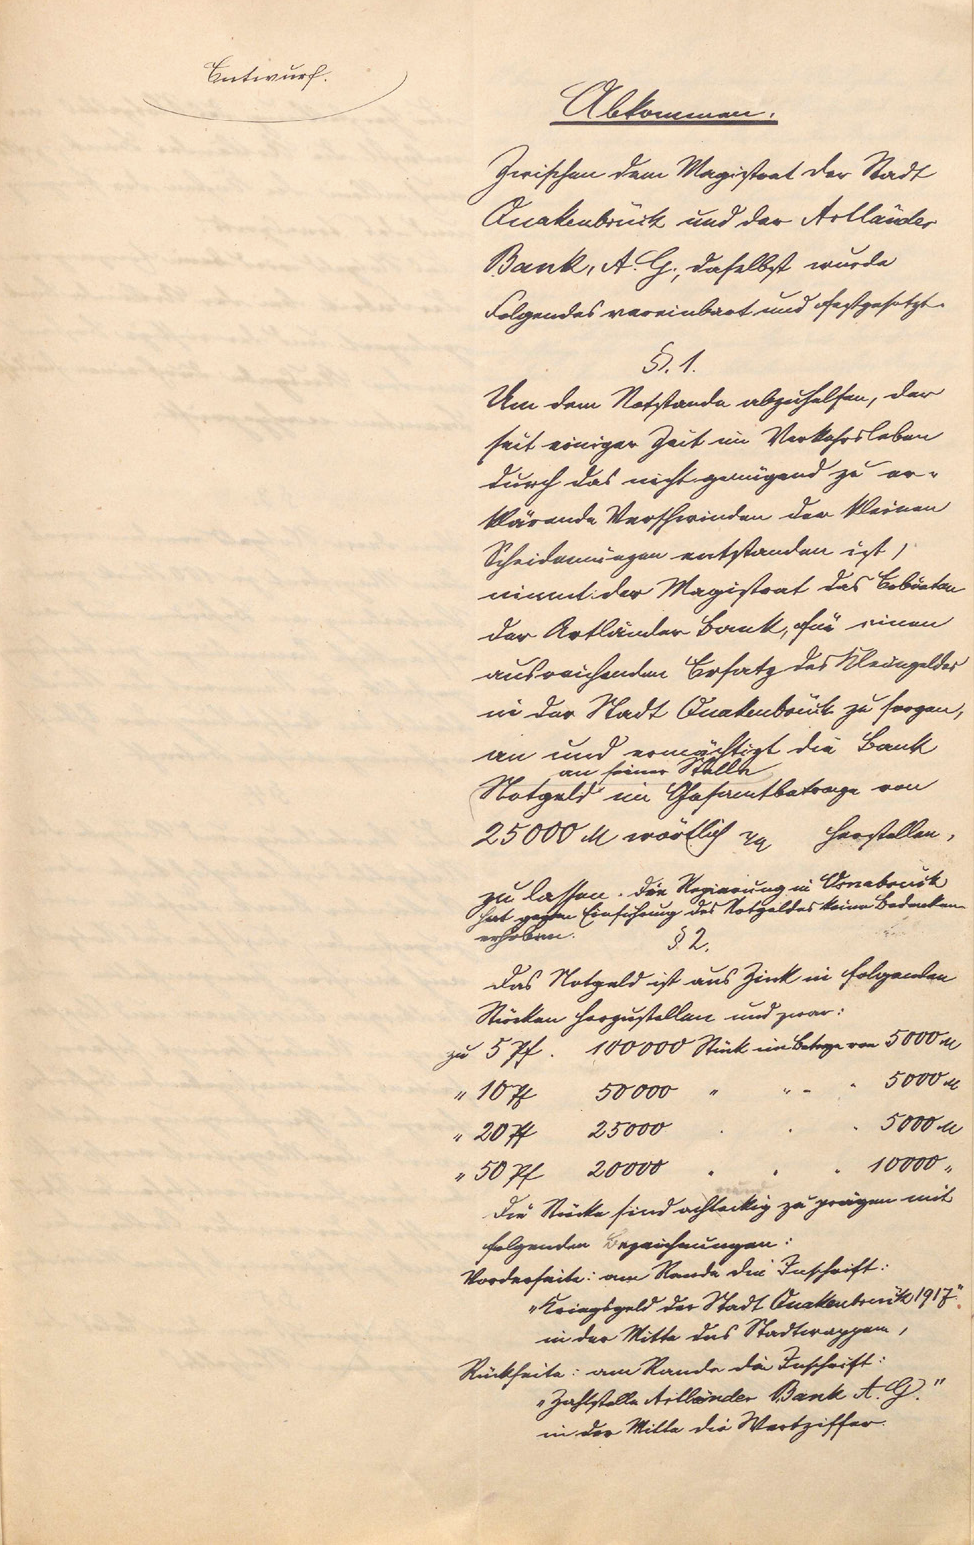 Entwurf.
Abkommen.
Zwischen dem Magistrat der Stadt
Quakenbrück und der Artländer
Bank, A. G., daselbst wurde
Folgendes vereinbart und festgesetzt.
§. 1.
Um dem Notstande abzuhelfen, der
seit einiger Zeit im Verkehrsleben
durch das nicht genügend zu er-
klärende Verschwinden der kleinen
Scheidemünzen entstanden ist,
nimmt der Magistrat das Erbieten
der Artländer Bank, für einen
ausreichenden Ersatz des Kleingeldes
in der Stadt Quakenbrück zu sorgen,
an und ermächtigt die Bank
an seiner Stelle
Notgeld im Gesamtbetrage von
25000 M wörtlich herstellen
zu lassen. Die Regierung in Osnabrück
hat gegen Einführung des Notgeldes keine Bedenken
erhoben.
§ 2.
Das Notgeld ist aus Zink in folgenden
Stücken herzustellen und zwar:
zu 5 Pf. 100000 Stück im Betrage von 5000 M
" 10 Pf 50000 " " " 5000 M
" 20 Pf 25000 " " " 5000 M
" 50 Pf 20000 " " " 10000 "
Die Stücke sind achteckig zu prägen mit
folgenden Bezeichnungen:
Vorderseite: am Rande die Inschrift:
"Kriegsgeld der Stadt Quakenbrück 1917"
in der Mitte das Stadtwappen,
Rückseite: am Rande die Inschrift:
"Zahlstelle Artländer Bank A. G."
in der Mitte die Wertziffer.